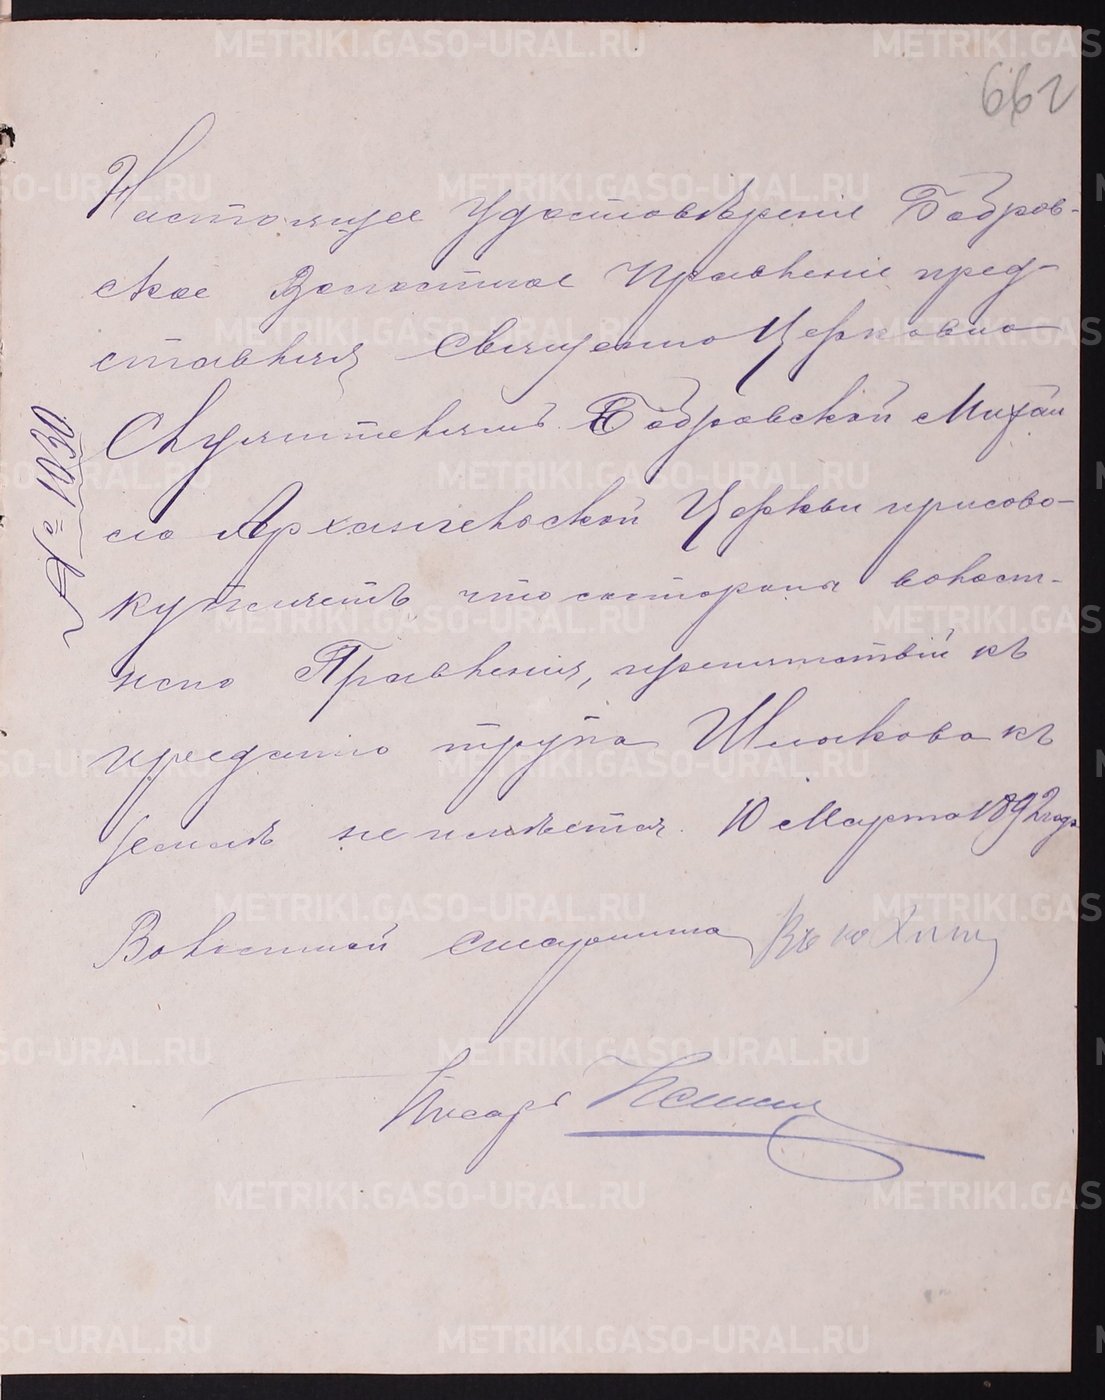 662
Настоящее Удостоверѣніе Бобров-
ское Волостное Правленіе пред-
ставляя Священно Церковно
Служителямъ Бобровской Михаи
ло Архангельской Церкви присово-
купляетъ что состороны волост-
ного Правленія, препятствій къ
преданію трупа Шлыкова къ
землѣ не имѣется. 10 Марта 1892 года
№ 1030.
Волостной старшина
Писарь
METRIKI.GASO-URAL.RU